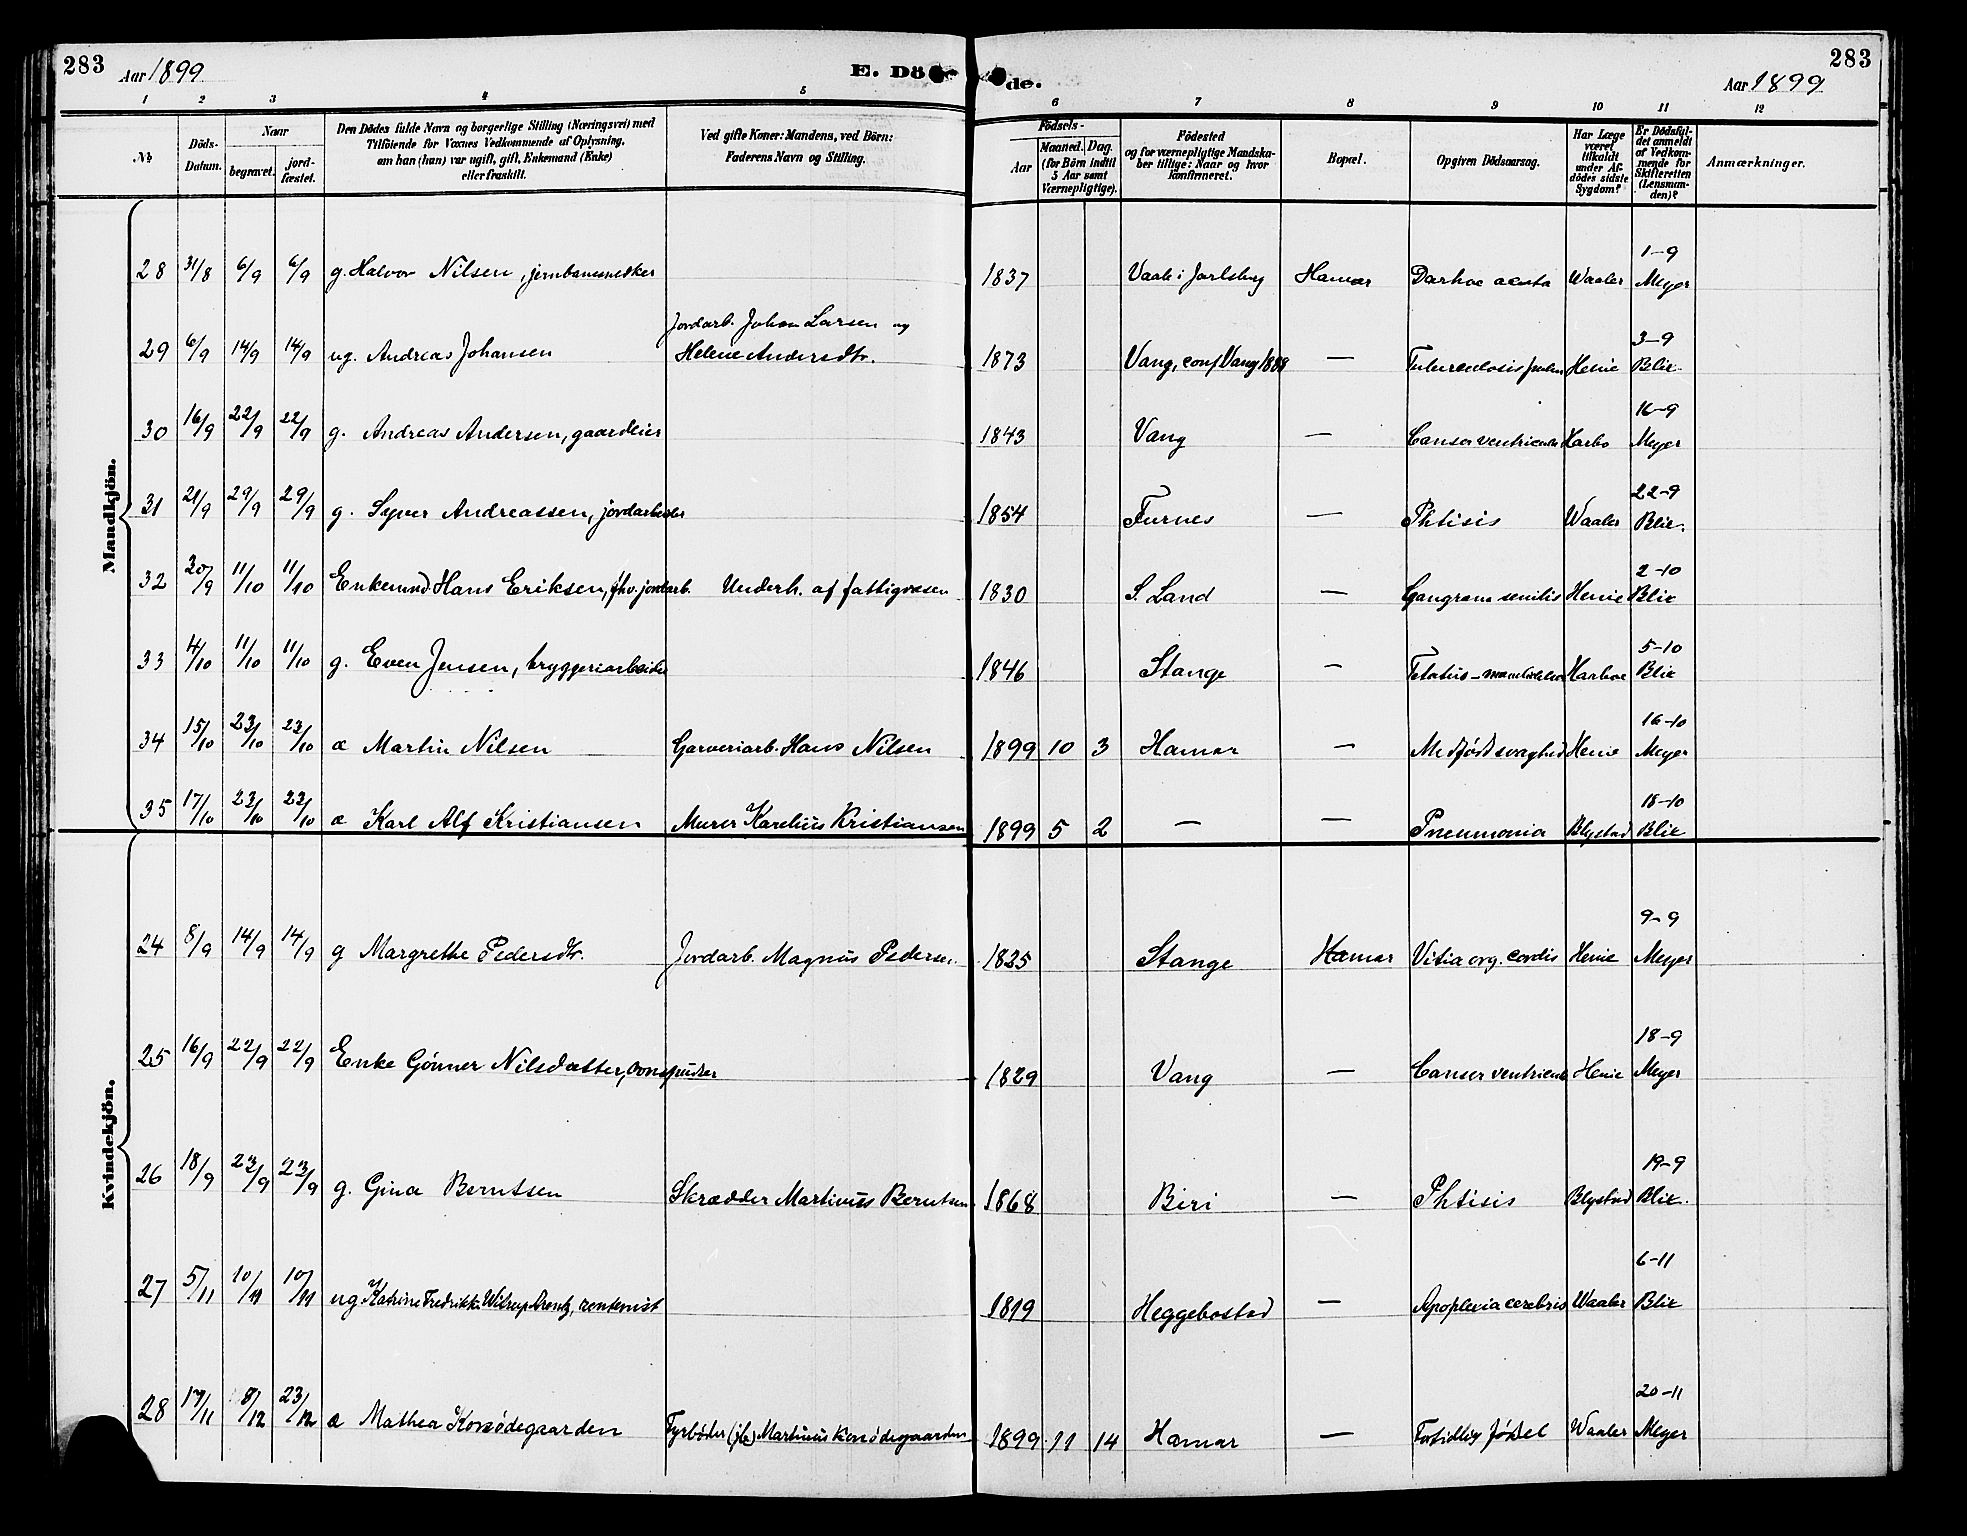 283
Aar 1899
E. Dö
de.
Aar 1899
283
1 2 3 4 5 6 7 8 9 10 11 12
No
Döds-Datum.
Naar
begravet.
jordfæstet.
Den Dödes fulde Navn og borgerlige Stilling (Næringsvei) med
Tilföiende for Voxnes Vedkommende af Oplysning,
om han (hun) var ugift, gift, Enkemand (Enke)
eller fraskilt.
Ved gifte Koner: Mandens, ved Börn:
Faderens Navn og Stilling.
Födsels-
Aar
Maaned. Dag.
(for Börn indtil
5 Aar samt
Værnepligtige).
Födested
og for værnepligtige Mandska-
ber tillige: Naar og hvor
konfirmeret.
Bopæl.
Opgiven Dödsaarsag.
Har Læge
været
tilkaldt
under Af-
dödes sidste
Sygdom?
Er Dödsfal-
det anmeldt
af Vedkom-
mende for
Skifteretten
(Lensman-
den)?
Anmærkninger.
Mandkjön.
28 31/8 6/9 6/9 g. Halvor Nilsen, 1837 Vaale i Jarlsberg Hamar acuta Waaler 1-9 Meyer
29 6/9 14/9 14/9 ug. Andreas Johansen Jordarb. Johan Larsen og Helene Andersdtr. 1873 Vang, conf Vang 1888 — Tuberculosis pulm Heiie 3-9 Blix
30 16/9 22/9 22/9 g. Andreas Andersen, gaardeier 1843 Vang — Canser ventriculi Harbo 16-9 Meyer
31 21/9 29/9 29/9 g. Syver Andreassen, jordarbeider 1854 Furnes — Phtisis Waaler 22-9 Blix.
32 30/9 11/10 11/10 Enkemnd. Hans Eriksen, fhv. jordarb. Underh. af fattigvæsen 1830 S. Land — Gangræna senilis Heiie 2-10 Blix
33 4/10 11/10 11/10 g. Even Jensen, bryggeriarbeider 1846 Stange — Harboe 5-10 Blix
34 15/10 23/10 23/10 æ Martin Nilsen Garveriarb. Hans Nilsen 1899 10 3 Hamar — Medfødt svaghed Heiie 16-10 Meyer
35 17/10 23/10 23/10 æ Karl Alf Kristiansen Murer Karelius Kristiansen 1899 5 2 — — Pneumonia Blystad 18-10 Blix
Kvindekjön.
24 8/9 14/9 14/9 g Margrethe Pedersdtr. Jordarb. Magnus Pedersen. 1825 Stange Hamar Vitia org. cordis Heiie 9-9 Meyer
25 16/9 22/9 22/9 Enke Gønner Nilsdatter, 1829 Vang — Canser ventriculi Heiie 18-9 Meyer
26 18/9 23/9 23/9 g. Gina Berntsen Skrædder Martinus Berntsen 1868 Biri — Phtisis Blystad 19-9 Blix.
27 5/11 10/11 10/11 ug Katrine Fredrikke Wilrup Arentz, rentenist 1819 Heggebostad — Apoplexia cerebris Waaler 6-11 Blix
28 17/11 8/12 23/12 æ Mathea Korsødegaarden Fyrbøder (jb.) Martinus Korsødegaarden 1899 11 14 Hamar — Fortidlig fødsel Waaler 20-11 Meyer